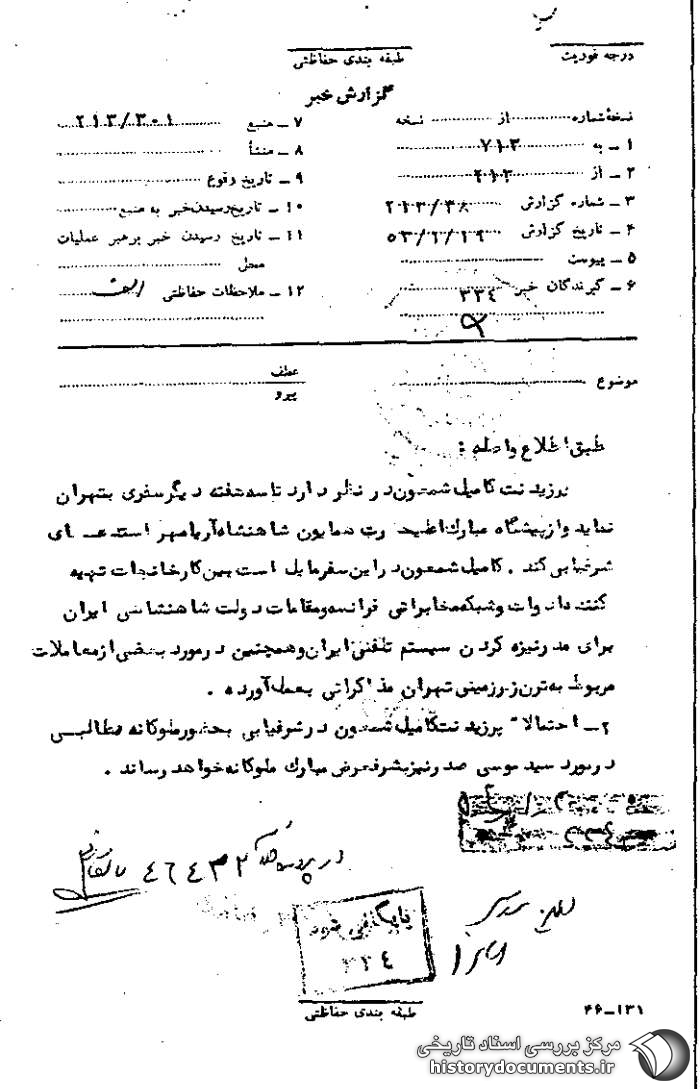 درجه فوریت
طبقه بندی حفاظتی
گزارش خبر
نسخهٔ شماره از نسخه
۱ ـ به ۷۱۳
۲ ـ از ۲۱۳
۳ ـ شماره گزارش ۲۱۳/۳۸
۴ ـ تاریخ گزارش ۵۳/۲/۱۹
۵ ـ پیوست
۶ ـ گیرندگان خبر ۳۳۴
۷ ـ منبع ۲۱۳/۳۰۱
۸ ـ منشأ
۹ ـ تاریخ وقوع
۱۰ ـ تاریخ رسیدن خبر به منبع
۱۱ ـ تاریخ رسیدن خبر برهبر عملیات
محل
۱۲ ـ ملاحظات حفاظتی الف
موضوع
عطف
پیرو
طبق اطلاع واصله :
پرزیدنت کامیل شمعون در نظر دارد تا سه هفته دیگر سفری بتهران
نماید و از پیشگاه مبارک اعلیحضرت همایون شاهنشاه آریامهر استدعای
شرفیابی کند . کامیل شمعون در این سفر مایل است بین کارخانجات تهیه
کننده ادوات و شبکه مخابراتی فرانسه و مقامات دولت شاهنشاهی ایران
برای مدرنیزه کردن سیستم تلفنی ایران و همچنین در مورد بعضی از معاملات
مربوط به ترن زیرزمینی تهران مذاکراتی بعمل آورد .
۲ـ احتمالا" پرزیدنت کامیل شمعون در شرفیابی بحضور ملوکانه مطالبی
در مورد سید موسی صدر نیز بشرفعرض مبارک ملوکانه خواهد رساند .
در پرونده کلاسه ۴۶۴۳۲ بایگانی
بایگانی شود
۳۳۴
طبقه بندی حفاظتی
۴۶ـ۱۳۱
مرکز بررسی اسناد تاریخی
historydocuments.ir